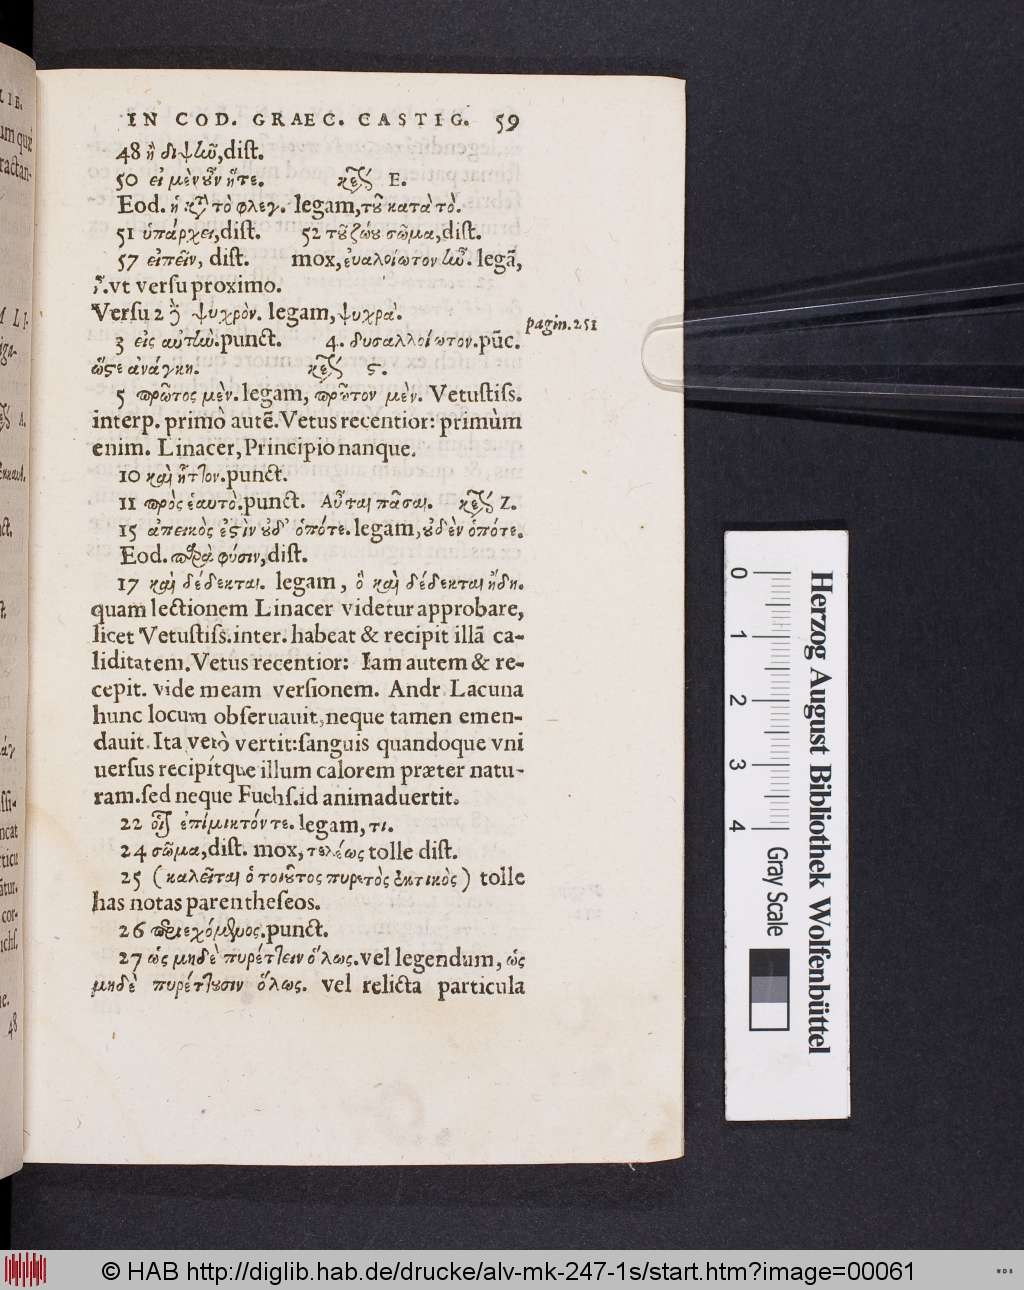 IN COD. GRAEC. CASTIG. 59
48 ἢ διψῶν, dist.
50 εἰ μὲν οὖν ἥτε. κεφ E.
Eod. ἡ κατὰ τὸ φλεγ. legam, τοῦ κατὰ τὸ.
51 ὑπάρχει, dist. 52 τοῦ ζώου σῶμα, dist.
57 εἰπεῖν, dist. mox, εὐαλοίωτον legã,
ἦν. vt versu proximo.
Versu 2 ψυχρὸν. legam, ψυχρὰ.
pagin. 251
3 εἰς αὐτὼ. punct. 4. δυσαλλοίωτον. pũc.
ὥστε ἀνάγκη. κεφ ς.
5 πρῶτος μὲν. legam, πρῶτον μὲν. Vetustiss.
interp. primò autẽ. Vetus recentior: primùm
enim. Linacer, Principio nanque.
10 καὶ ἧττον. punct.
11 πρὸς ἑαυτὸ. punct. Αὗται πᾶσαι. κεφ Z.
15 ἀπεικὸς ἐστὶν οὐδ' ὁπότε. legam, οὐδὲν ὁπότε.
Eod. παρὰ φύσιν, dist.
17 καὶ δέδεκται. legam, ὃ καὶ δέδεκται ἤδη.
quam lectionem Linacer videtur approbare,
licet Vetustiss. inter. habeat & recipit illã ca-
liditatem. Vetus recentior: Iam autem & re-
cepit. vide meam versionem. Andr Lacuna
hunc locum obseruauit, neque tamen emen-
dauit. Ita verò vertit: sanguis quandoque vni
uersus recipítque illum calorem præter natu-
ram. sed neque Fuchs. id animaduertit.
22 οἷς ἐπίμικτόν τε. legam, τι.
24 σῶμα, dist. mox, τελέως tolle dist.
25 (καλεῖται ὁ τοιοῦτος πυρετὸς ἑκτικὸς) tolle
has notas parentheseos.
26 περιεχόμενος. punct.
27 ὡς μηδὲ πυρέττειν ὅλως. vel legendum, ὡς
μηδὲ πυρέττουσιν ὅλως. vel relicta particula
0 1 2 3 4
Gray Scale
Herzog August Bibliothek Wolfenbüttel
© HAB http://diglib.hab.de/drucke/alv-mk-247-1s/start.htm?image=00061